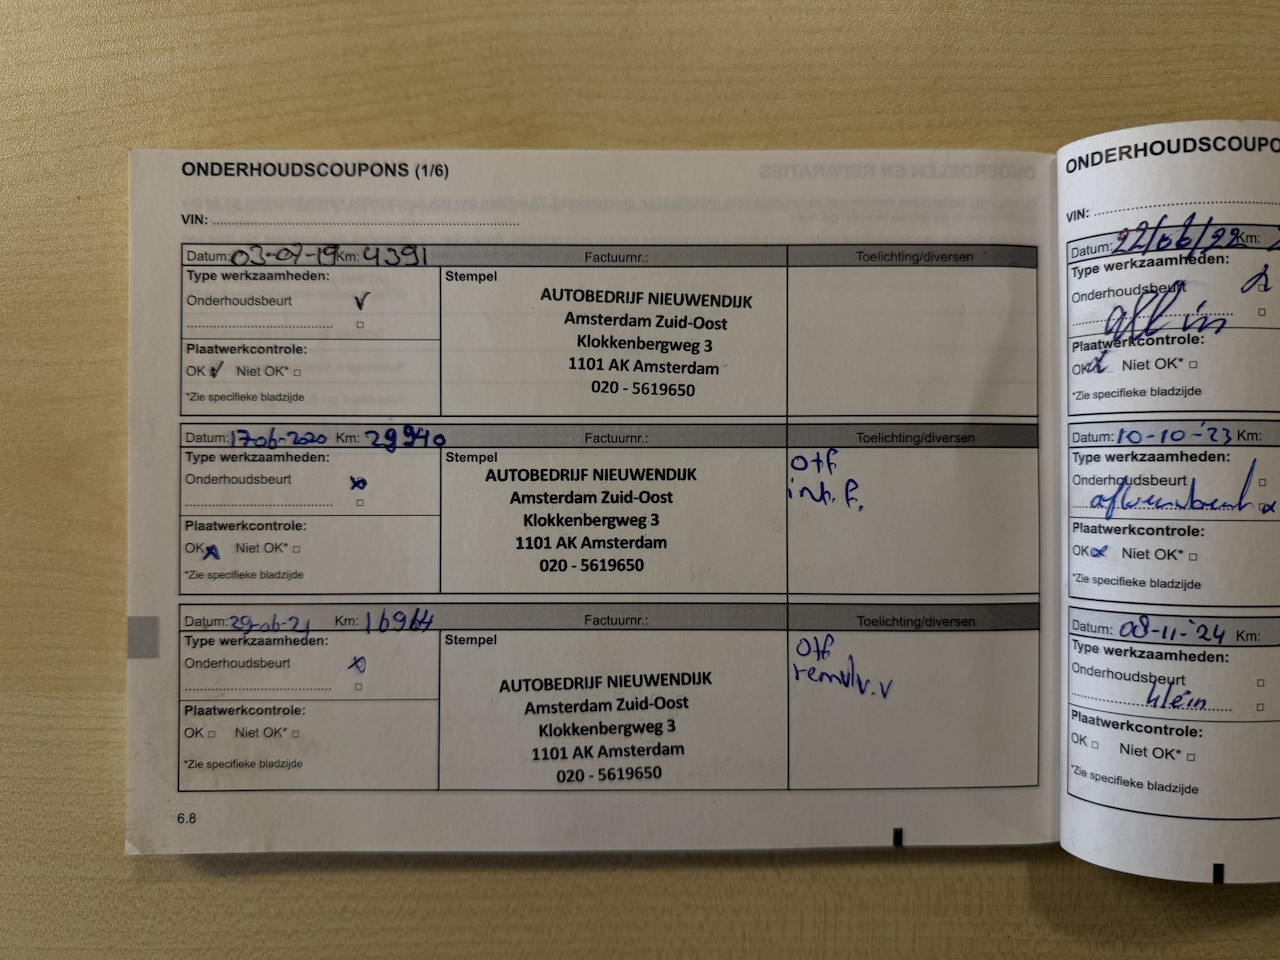 ONDERHOUDSCOUPONS (1/6)
VIN:
Datum: 03-07-19 Km: 4391 Factuurnr.: Toelichting/diversen
Type werkzaamheden:
Stempel
Onderhoudsbeurt
Plaatwerkcontrole:
OK Niet OK*
*Zie specifieke bladzijde
AUTOBEDRIJF NIEUWENDIJK
Amsterdam Zuid-Oost
Klokkenbergweg 3
1101 AK Amsterdam
020 - 5619650
Datum: 17-06-2020 Km: 29940 Factuurnr.: Toelichting/diversen
Type werkzaamheden:
Stempel
Onderhoudsbeurt
Plaatwerkcontrole:
OK Niet OK*
*Zie specifieke bladzijde
AUTOBEDRIJF NIEUWENDIJK
Amsterdam Zuid-Oost
Klokkenbergweg 3
1101 AK Amsterdam
020 - 5619650
Otf
int. f.
Datum: 29-06-21 Km: 16964 Factuurnr.: Toelichting/diversen
Type werkzaamheden:
Stempel
Onderhoudsbeurt
Plaatwerkcontrole:
OK Niet OK*
*Zie specifieke bladzijde
AUTOBEDRIJF NIEUWENDIJK
Amsterdam Zuid-Oost
Klokkenbergweg 3
1101 AK Amsterdam
020 - 5619650
Otf
6.8
ONDERHOUDSCOUPO
VIN:
Datum: 22/06/22 Km:
Type werkzaamheden:
Onderhoudsbeurt
Plaatwerkcontrole:
OK Niet OK*
*Zie specifieke bladzijde
Datum: 10-10-'23 Km:
Type werkzaamheden:
Onderhoudsbeurt
Plaatwerkcontrole:
OK Niet OK*
*Zie specifieke bladzijde
Datum: 08-11-'24 Km:
Type werkzaamheden:
Onderhoudsbeurt
klein
Plaatwerkcontrole:
OK Niet OK*
*Zie specifieke bladzijde